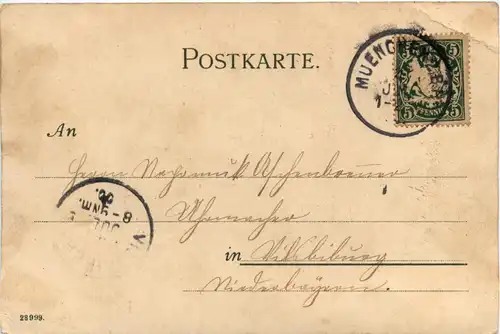 POSTKARTE.
MUENCHEN
5 5
An
Herrn Nepomuk Aschenbrenner
Uhrmacher
in Vilsbiburg
Niederbayern.
8-9NM.
28999.